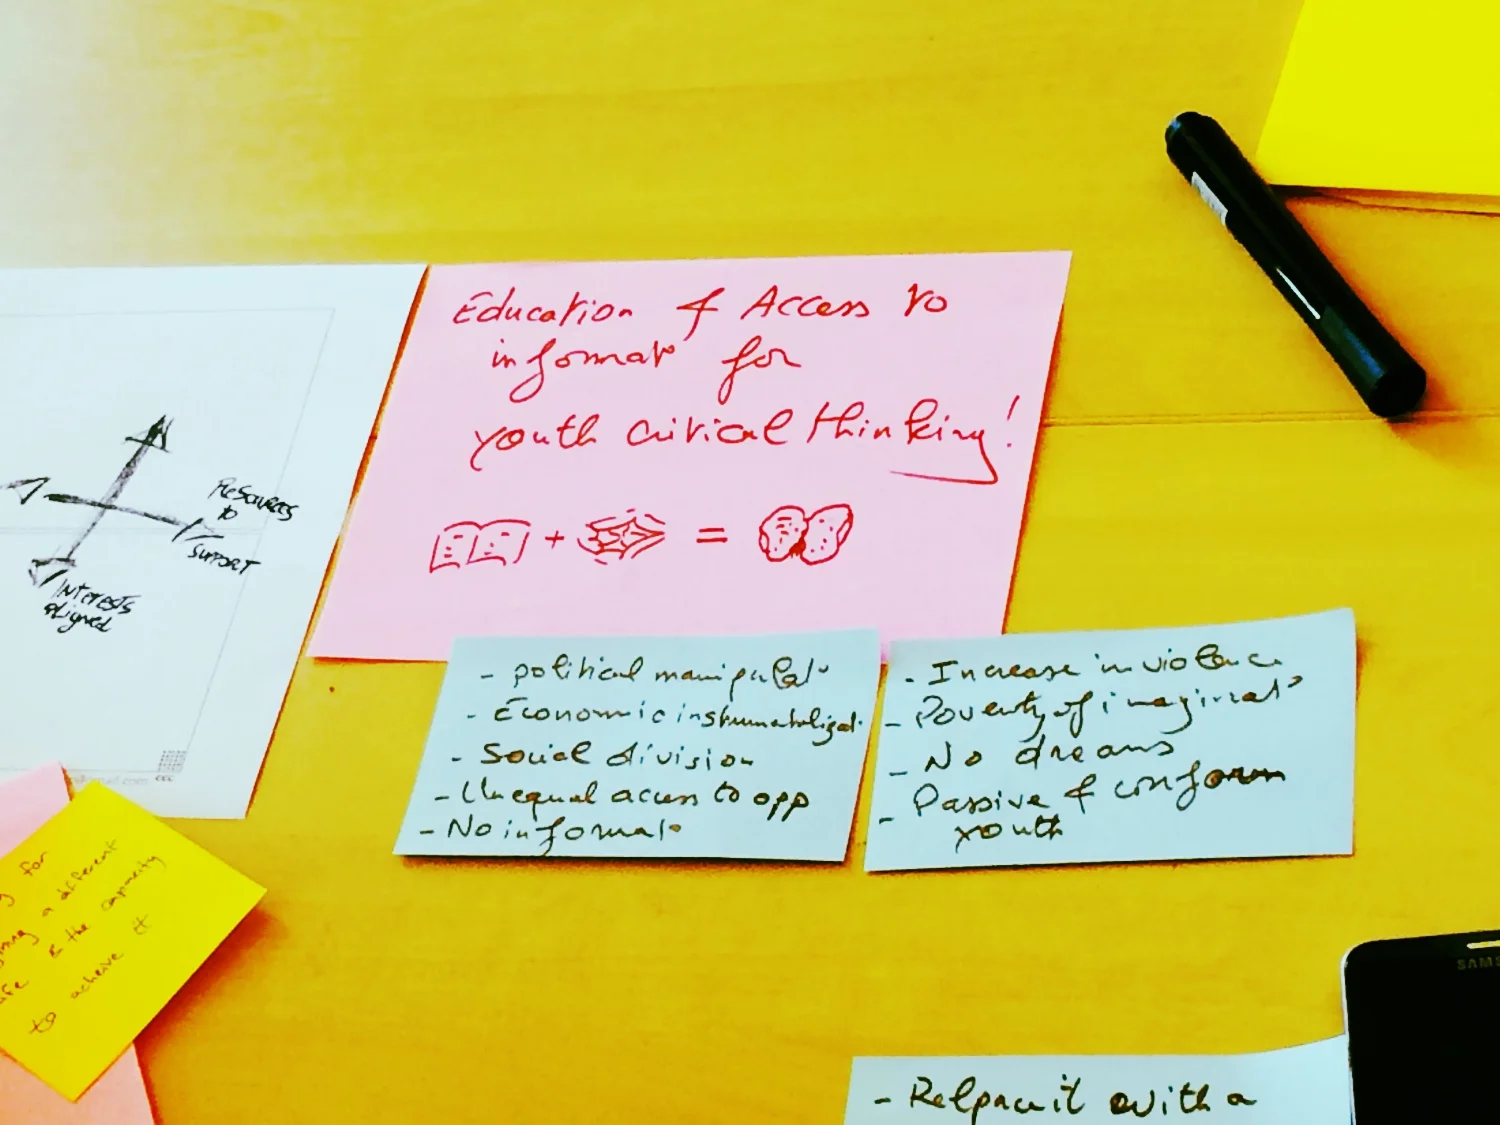 Education & Access to
informat° for
youth critical thinking!
+ =
Resources
to
support
Interests
aligned
- political manipulat°
- Economic instrumentalizat.
- Social division
- Unequal access to opp
- No informat°
- Increase in violence
- Poverty of imaginat°
- No dreams
- Passive & conform
youth
for
a different
& the capacity
to acheive it
- Relpace it with a
SAMS